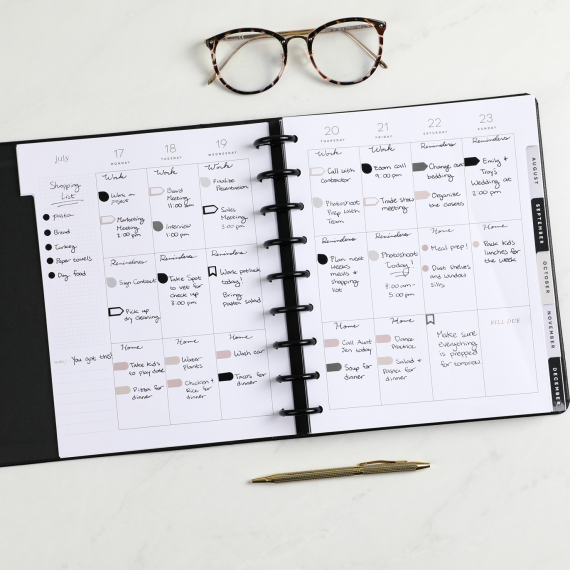 July
Shopping
List
Pasta
Bread
Turkey
Paper towels
Dog food
You got this!
17
MONDAY
Work
Work on
project
Marketing
Meeting
2:00 pm
Reminders
Sign Contract
Pick up
dry cleaning
Home
Take kids
to play date
Pizza for
dinner
18
TUESDAY
Work
Board
Meeting
11:00 am
Interview
1:00 pm
Reminders
Take Spot
to vet for
check up
3:00 pm
Home
Water
Plants
Chicken &
Rice for
dinner
19
WEDNESDAY
Work
Finalize
Presentation
Sales
Meeting
3:00 pm
Reminders
Work potluck
today!
Bring
pasta salad
Home
Wash car
Tacos for
dinner
20
THURSDAY
Work
Call with
contractor
Photoshoot
Prep with
Team
Reminders
Plan next
weeks
meals &
shopping
list
Home
Call Aunt
Jen today
Soup for
dinner
21
FRIDAY
Work
Zoom call
9:00 pm
Trade show
meeting
Reminders
Photoshoot
Today!
9:00 am -
5:00 pm
Home
Dance
Practice
Salad &
Pasta for
dinner
22
SATURDAY
Reminders
Change out
bedding
Organize
the closets
Home
Meal prep!
Dust shelves
and window
sills
Make sure
everything
is prepped
for tomorrow
23
SUNDAY
Reminders
Emily &
Troy's
Wedding at
2:00 pm
Pack kids
lunches for
the week
BILL DUE
AUGUST
SEPTEMBER
OCTOBER
NOVEMBER
DECEMBER